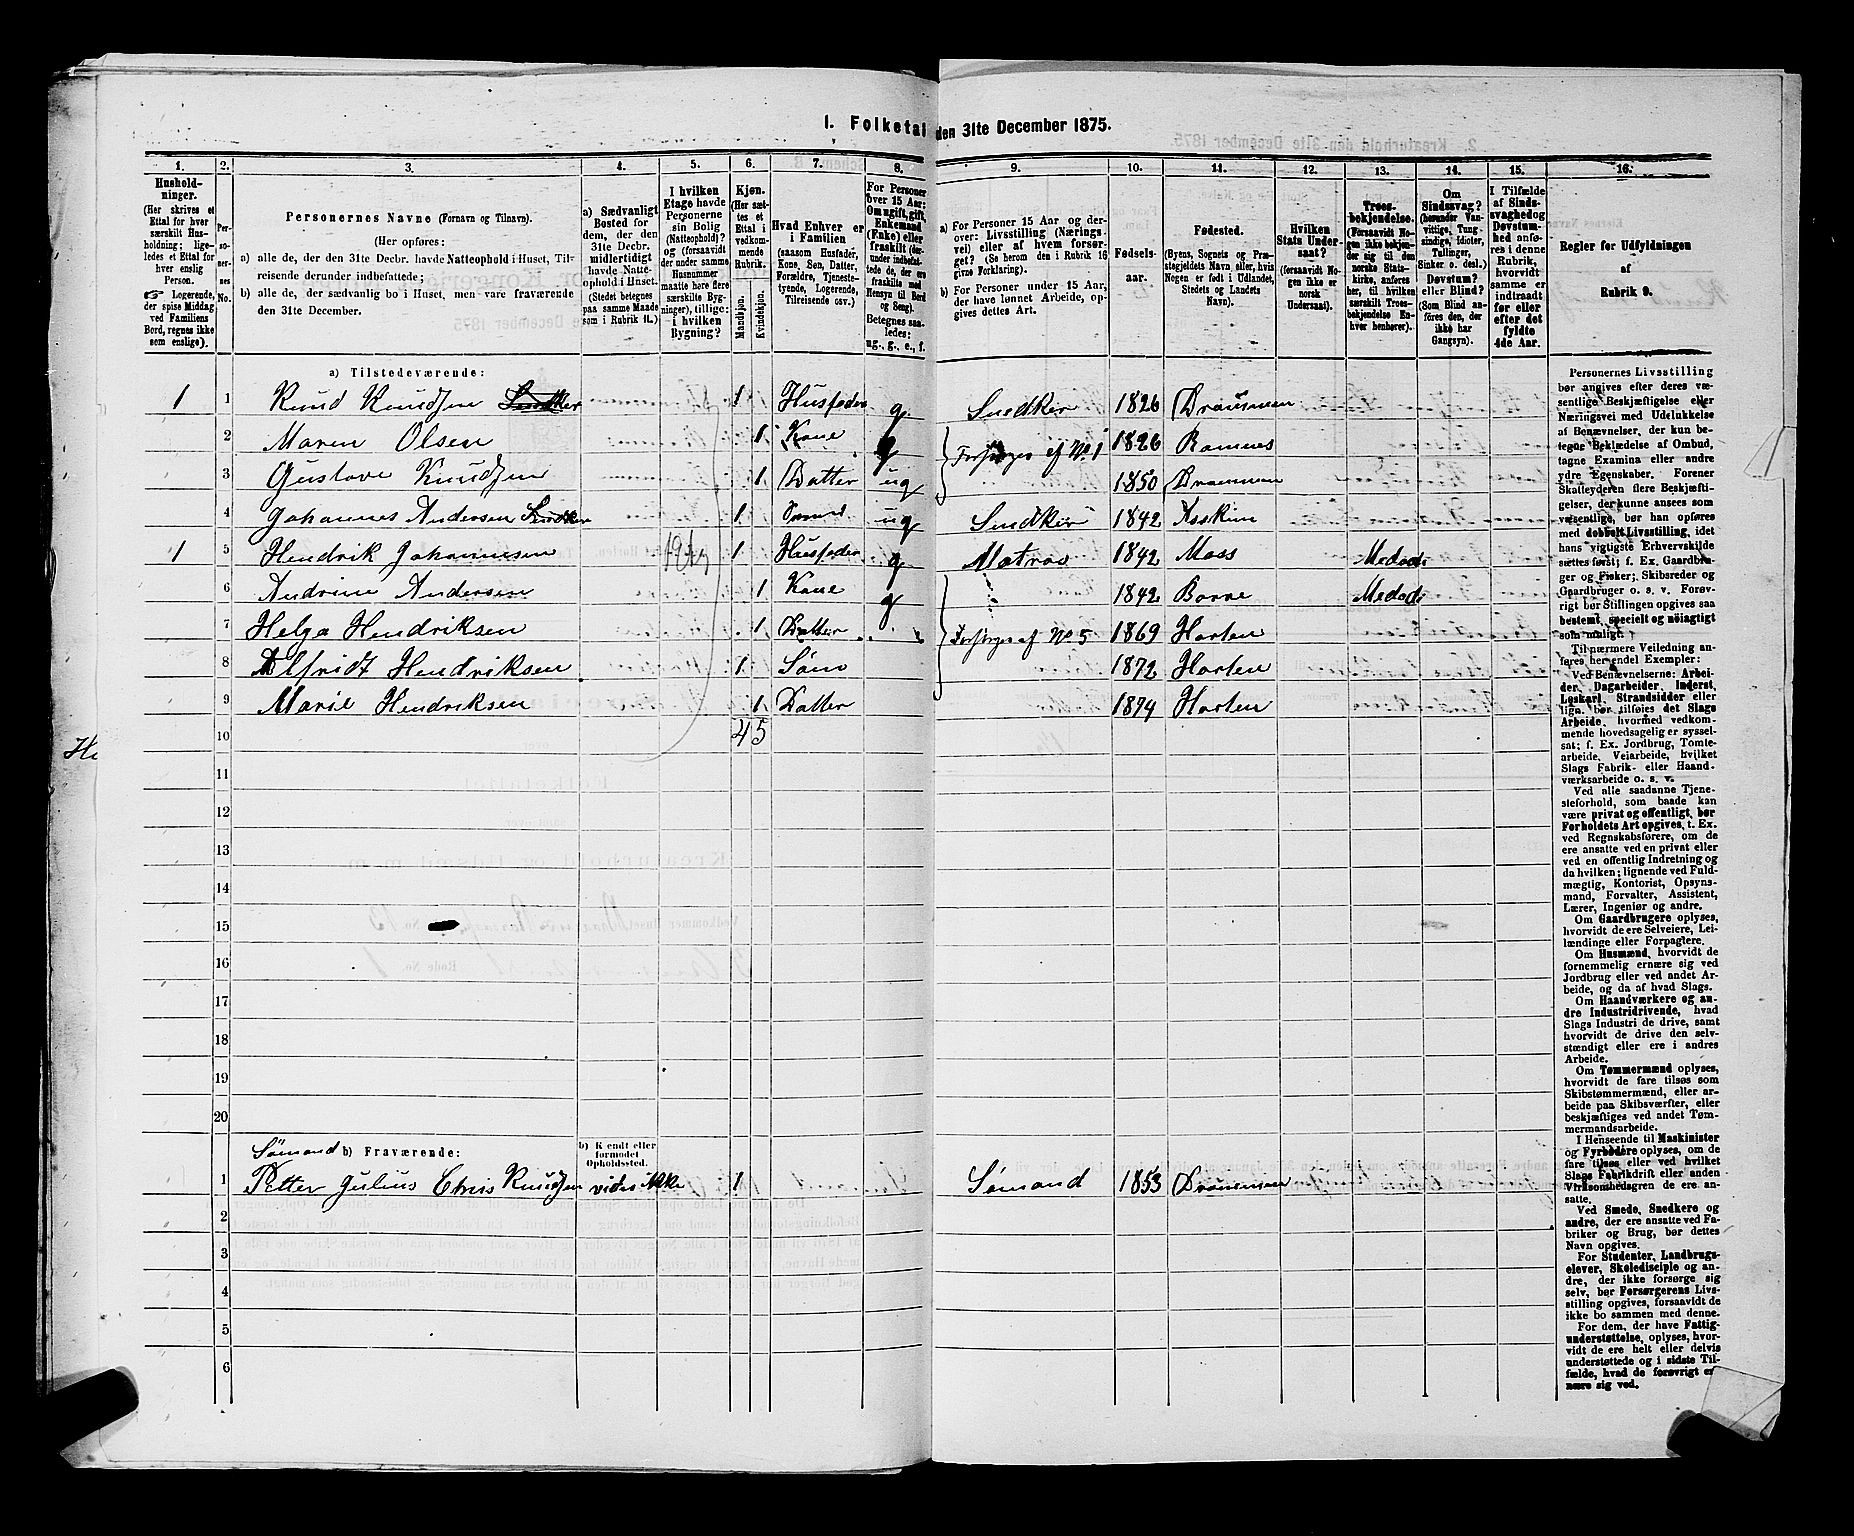 1. Folketal den 31te December 1875.
1. 2. 3. 4. 5. 6. 7. 8. 9. 10. 11. 12. 13. 14. 15. 16.
Husholdninger.
(Her skrives et
Ettal for hver
særskilt Husholdning;
ligeledes et Ettal for
hver enslig
Person.
Logerende,
der spise Middag
ved Familiens
Bord, regnes ikke
som enslige).
Personernes No.
Personernes Navne (Fornavn og Tilnavn).
(Her opføres:
a) alle de, der den 31te Decbr. havde Natteophold i Huset, Tilreisende derunder indbefattede;
b) alle de, der sædvanlig bo i Huset, men vare fraværende
den 31te December.
a) Sædvanligt
Bosted for
dem, der den
31te Decbr.
midlertidigt
havde Natteophold
i Huset.
(Stedet betegnes
paa samme Maade
som i Rubrik 11.)
I hvilken
Etage havde
Personerne
sin Bolig
(Natteophold)?
(forsaavidt
der under samme
Husnummer
maatte høre flere
særskilte Bygninger),
tillige:
i hvilken
Bygning?
Kjøn.
(Her sættes
et
Ettal i
vedkommende
Rubrik.
Mandkjøn. Kvindekjøn.
Hvad Enhver er
i Familien
(saasom Husfader,
Kone, Søn, Datter,
Forældre, Tjenestetyende,
Logerende,
Tilreisende osv.)
For Personer
over 15 Aar:
Om ugift, gift,
Enkemand
(Enke) eller
fraskilt
(derunder indbefattede
de, der ere
fraskilte med
Hensyn til Bord
og Seng).
Betegnes saaledes:
ug., g., e., f.
a) For Personer 15 Aar og derover:
Livsstilling (Næringsvei)
eller af hvem forsørget?
(Se herom den i Rubrik 16
givne Forklaring).
b) For Personer under 15 Aar,
der have lønnet Arbeide, opgives
dettes Art.
Fødselsaar.
Fødested.
(Byens, Sognets og Præstegjeldets
Navn, eller, hvis
Nogen er født i Udlandet,
Stedets og Landets
Navn).
Hvilken
Stats Undersaat?
(forsaavidt Nogen
ikke er
norsk
Undersaat).
Troesbekjendelse.
(Forsaavidt Nogen
ikke bekjender
sig til den
norske Statskirke,
anføres
her, til hvilken
særskilt Troesbekjendelse
Enhver
henhører).
Om
Sindssvag?
(herunder Vanvittige,
Tungsindige,
Idioter,
Tullinger,
Sinker o. desl.)
Døvstum?
eller Blind?
(Som Blind anføres
den, der
ikke har
Gangsyn).
I Tilfælde
af Sindssvaghed
og
Døvstumhed
anføres
i denne
Rubrik,
hvorvidt
samme er
indtraadt
før eller
efter det
fyldte
4de Aar.
Regler for Udfyldningen
af
Rubrik 9.
a) Tilstedeværende:
1 1 Knud Knudsen Snedker 1 Husfader g Snedker 1826 Drammen
2 Maren Olsen 1 Kone g Forsørges af No. 1 1826 Ramnes
3 Gustave Knudsen 1 Datter ug 1850 Drammen
4 Johannes Andersen Snedker 1 ug Snedker 1842 Askim
1 5 Hendrik Johannesen 1 Husfader g Matros 1842 Moss Medod
6 Andrine Andersen 1 Kone g 1842 Borre Medod
7 Helga Hendriksen 1 Datter Forsørges af No. 5 1869 Horten
8 Alfridt Hendriksen 1 Søn 1872 Horten
9 Marie Hendriksen 1 Datter 1874 Horten
10 4 5
11
12
13
14
15
16
17
18
19
20
Sømand b) Fraværende: b) Kjendt eller formodet Opholdssted.
1 Petter Julius Chris Knudsen vides ikke 1 Sømand 1853 Drammen
2
3
4
5
6
Personernes Livsstilling
bør angives efter deres væsentlige
Beskjæftigelse eller
Næringsvei med Udelukkelse
af Benævnelser, der kun betegne
Beklædelse af Ombud,
tagne Examina eller andre
ydre Egenskaber. Forener
Skatteyderen flere Beskjæftigelser,
der kunne ansees som
væsentlige, bør han opføres
med dobbelt Livsstilling, idet
hans vigtigste Erhvervskilde
sættes først; f. Ex. Gaardbruger
og Fisker; Skibsreder og
Gaardbruger o. s. v. Forøvrigt
bør Stillingen opgives saa
bestemt, specielt og nöiagtigt
som muligt.
Til nærmere Veiledning anføres
her endel Exempler:
Ved Benævnelserne: Arbeider,
Dagarbeider, Inderst,
Løskarl, Strandsidder eller
lign. bør tilføies det Slags
Arbeide, hvormed vedkommende
hovedsagelig er sysselsat;
f. Ex. Jordbrug, Tomtearbeide,
Veiarbeide, hvilket
Slags Fabrik- eller Haandværksarbeide
o. s. v.
Ved alle saadanne Tjenesteforhold,
som baade kan
være privat og offentligt, bør
Forholdets Art opgives, t. Ex.
ved Regnskabsførere, om de
ere ansatte ved en privat eller
ved en offentlig Indretning og
da hvilken; lignende ved Fuldmægtig,
Kontorist, Opsynsmand,
Forvalter, Assistent,
Lærer, Ingeniør og andre.
Om Gaardbrugere oplyses,
hvorvidt de ere Selveiere, Leilændinge
eller Forpagtere.
Om Husmænd, hvorvidt de
fornemmelig ernære sig ved
Jordbrug eller ved andet Arbeide,
og da af hvad Slags.
Om Haandværkere og andre
Industridrivende, hvad
Slags Industri de drive, samt
hvorvidt de drive den selvstændigt
eller ere i andres
Arbeide.
Om Tømmermænd oplyses,
hvorvidt de fare tilsøs som
Skibstømmermænd, eller arbeide
paa Skibsværfter, eller
beskjæftiges ved andet Tømmermandsarbeide.
I Henseende til Maskinister
og Fyrbødere oplyses, om de
fare tilsøs eller ved hvilket
Slags Fabrikdrift eller anden
Virksomhedsgren de ere ansatte.
Ved Smede, Snedkere og
andre, der ere ansatte ved Fabriker
og Brug, bør dettes
Navn opgives.
For Studenter, Landbrugselever,
Skoledisciple og andre,
der ikke forsørge sig
selv, bør Forsørgerens Livsstilling
opgives, forsaavidt de
ikke bo sammen med denne.
For dem, der have Fattigunderstøttelse,
oplyses, hvorvidt
de ere helt eller delvis
understøttede og i sidste Tilfælde,
hvad de forøvrigt ernære
sig ved.